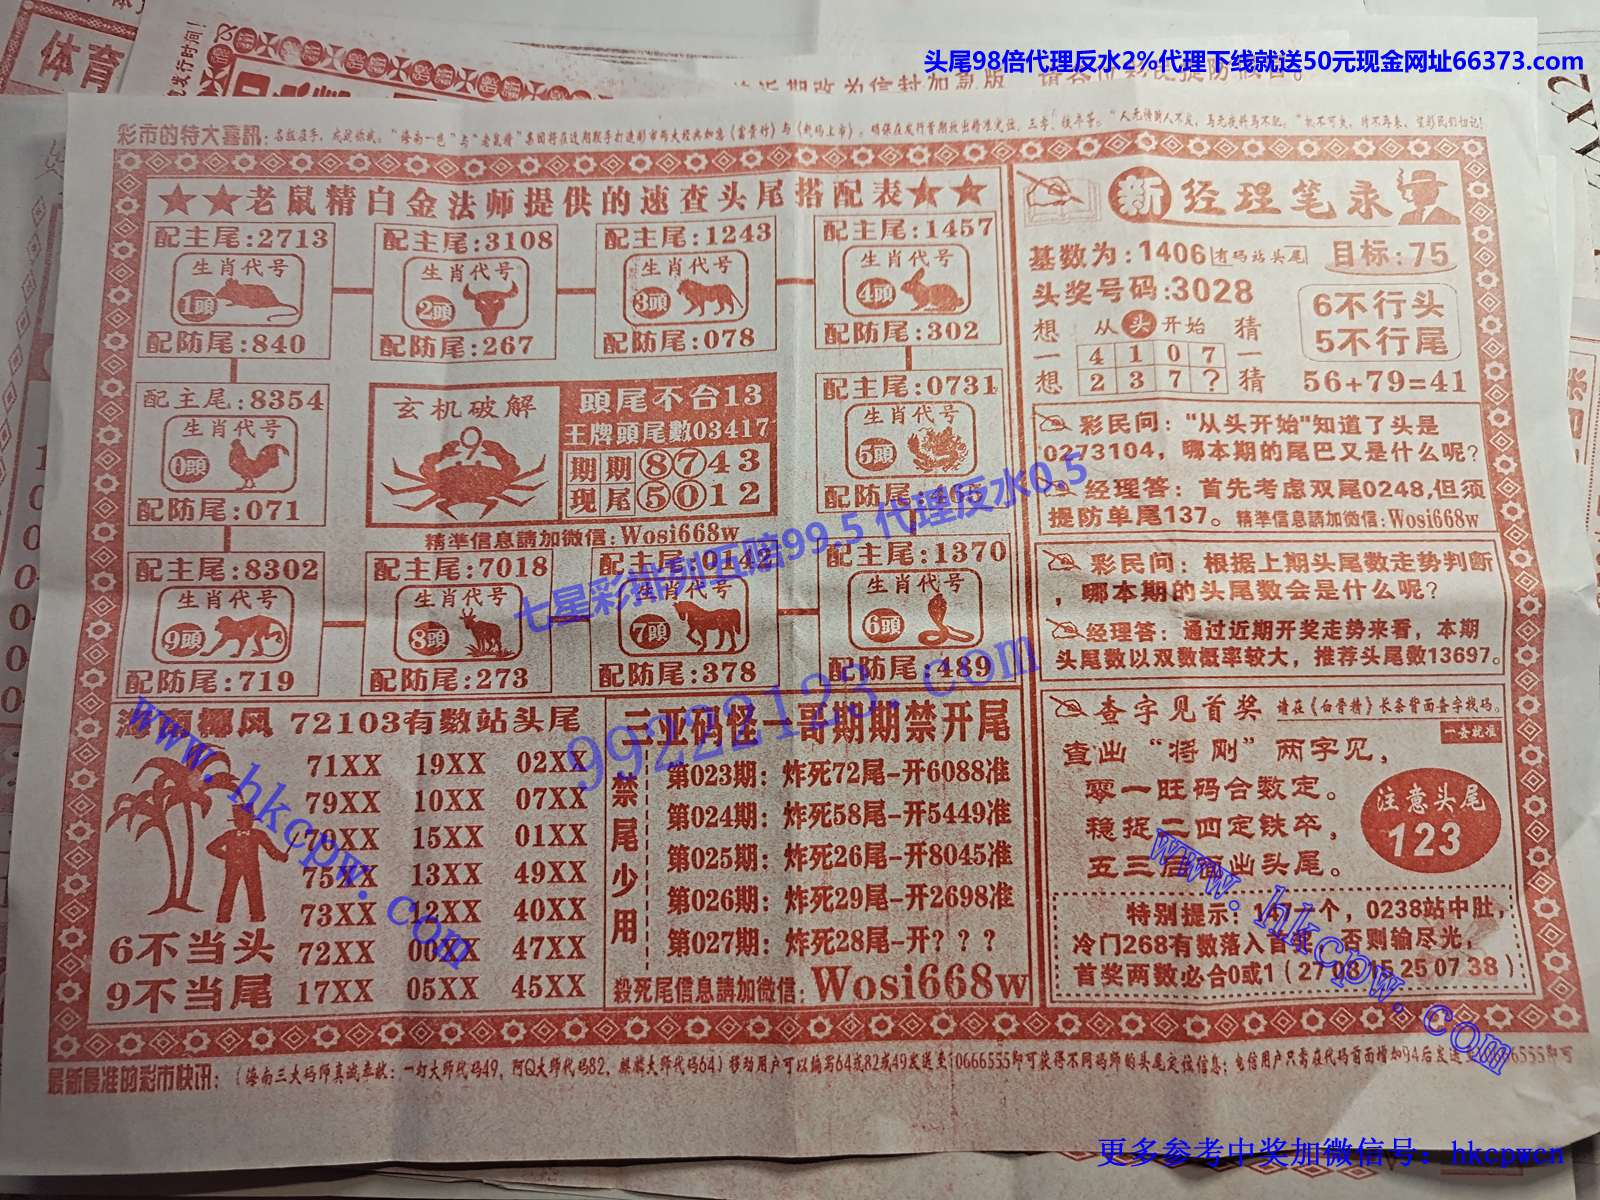 头尾98倍代理反水2%代理下线就送50元现金网址66373.com
体育
彩市的特大喜訊:
★★老鼠精白金法师提供的速查头尾搭配表★★
配主尾:2713
生肖代号
1頭
配防尾:840
配主尾:3108
生肖代号
2頭
配防尾:267
配主尾:1243
生肖代号
3頭
配防尾:078
配主尾:1457
生肖代号
4頭
配防尾:302
配主尾:8354
生肖代号
0頭
配防尾:071
玄机破解
9
頭尾不合13
王牌頭尾數03417
期期⑧⑦43
现尾⑤⓪12
精準信息請加微信:Wosi668w
配主尾:0731
生肖代号
5頭
配防尾:465
配主尾:8302
生肖代号
9頭
配防尾:719
配主尾:7018
生肖代号
8頭
配防尾:273
配主尾:0142
生肖代号
7頭
配防尾:378
配主尾:1370
生肖代号
6頭
配防尾:489
七星彩排列五赔99.5 代理反水0.5
99222123.com
海南椰风 72103有数站头尾
71XX 19XX 02XX
79XX 10XX 07XX
70XX 15XX 01XX
75XX 13XX 49XX
73XX 12XX 40XX
72XX 00XX 47XX
17XX 05XX 45XX
6不当头
9不当尾
www.hkcpw.com
三亚码怪一哥期期禁开尾
禁尾少用
第023期: 炸死72尾-开6088准
第024期: 炸死58尾-开5449准
第025期: 炸死26尾-开8045准
第026期: 炸死29尾-开2698准
第027期: 炸死28尾-开? ? ?
殺死尾信息請加微信: Wosi668w
新 经理笔录
基数为:1406 有码站头尾 目标:75
头奖号码:3028
6不行头
5不行尾
想一想 从头开始 猜一猜
4 1 0 7
2 3 7 ?
56+79=41
彩民问: "从头开始"知道了头是
0273104, 哪本期的尾巴又是什么呢?
经理答: 首先考虑双尾0248,但须
提防单尾137。精準信息請加微信:Wosi668w
彩民问: 根据上期头尾数走势判断
, 哪本期的头尾数会是什么呢?
经理答: 通过近期开奖走势来看, 本期
头尾数以双数概率较大, 推荐头尾数13697。
查字见首奖 请在《白骨精》长条背面查字找码。
一查就准
查出 "将刚" 两字见,
零一旺码合数定。
稳捉二四定铁卒,
五三后面出头尾。
注意头尾
123
www.hkcpw.com
特别提示: 147一个, 0238站中肚,
冷门268有数落入首奖, 否则输尽光,
首奖两数必合0或1 (27 08 15 25 07 38)
最新最准的彩市快讯: (海南三大码师真诚奉献: 一灯大师代码49, 阿Q大师代码82, 麒麟大师代码64) 移动用户可以编写64或82或49发送至10666555即可获得不同码师的头尾定位信息; 电信用户只需在代码前面增加94后发送
更多参考中奖加微信号: hkcpwcn